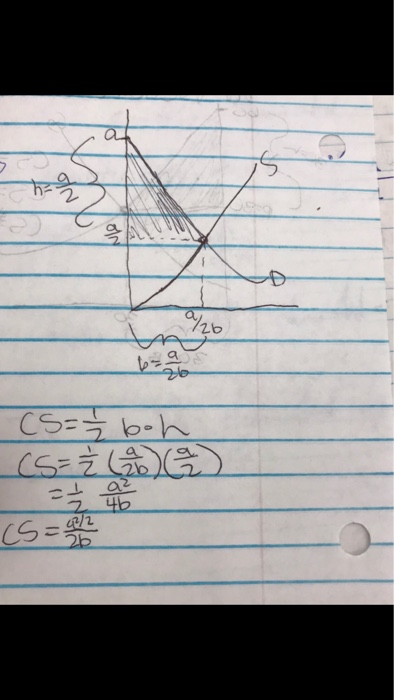 a
S
h=a/2
a/2
D
a/2b
b=a/2b
CS=1/2 b•h
CS=1/2 (a/2b)(a/2)
=1/2 a²/4b
CS=a²/2/2b